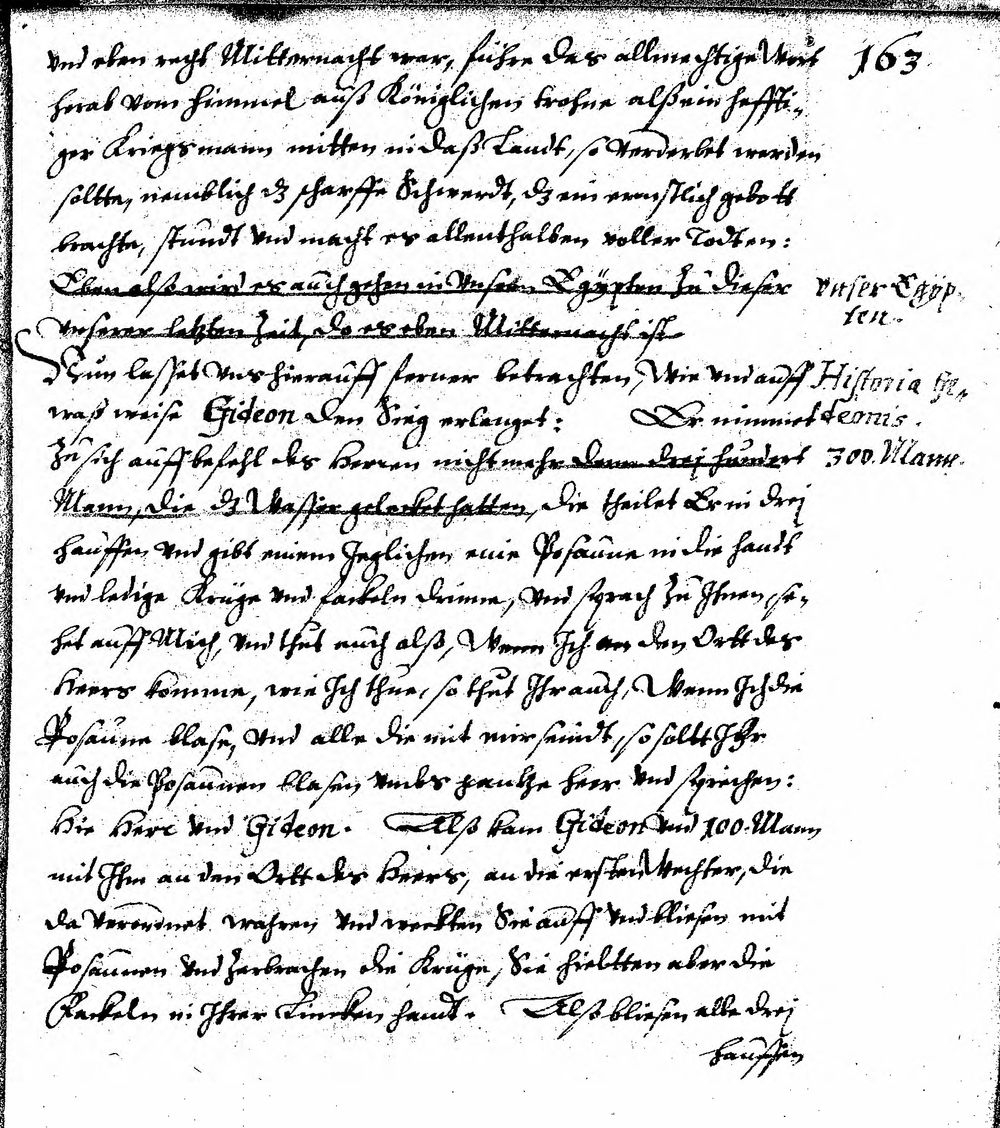 163
und eben recht Mitternacht war, fuhre das allmechtige Wort
herab vom himmel auß Königlichen trohne alß ein heffti-
ger Kriegsmann mitten in daß Landt, so verderbet werden
soltte, nemblich dz scharffe Schwerdt, dz ein ernstlich gebott
brachte, stundt vnd macht es allenthalben voller Todten:
Eben alß wird es auch gehen in vnserm Egÿpten zu dieser
vnser Egÿp-
ten.
vnserer letzten Zeit, do es eben Mitternacht ist.
Nun lasset vns hierauff ferner betrachten, Wie vnd auff
Historia Gi-
waß weise Gideon den Sieg erlanget: Er nimmet
deonis.
zu sich auff befehl des Herren nicht mehr denn drej hundert
300. Mann.
Mann, die dz Wasser gelecket hatten, die theilet Er in drej
hauffen vnd gibt einem Jeglichen eine Posaune in die handt
vnd ledige Krüge vnd fackeln drinne, vnd sprach zu Ihnen, se-
het auff Mich, vnd thut auch alß, Wenn Ich an den Ortt des
Heers komme, wie Ich thue, so thut Ihr auch, Wenn Ich die
Posaune blase, vnd alle die mit mir seindt, so sollt Ihr
auch die Posaunen blasen vmbs gantze heer vnd sprechen:
Hie Herr vnd Gideon. Alß kam Gideon vnd 100. Mann
mit Ihm an den Ortt des Heers, an die ersten Wechter, die
da verordnet wahren vnd weckten Sie auff vnd bliesen mit
Posaunen vnd zerbrachen die Krüge, Sie hieltten aber die
Fackeln in Ihrer Lincken handt. Alß bliesen alle drej
hauffen